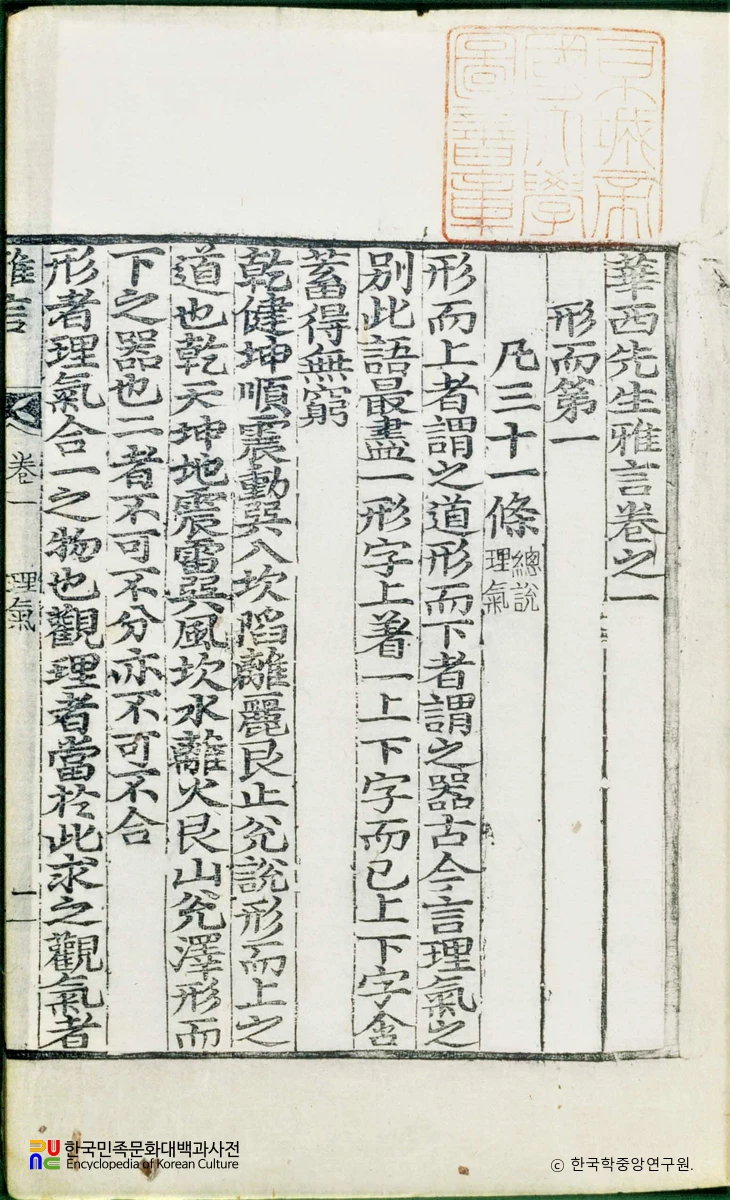 京城帝
國大學
圖書章
華西先生雅言卷之一
形而第一
凡三十一條 總說 理氣
形而上者謂之道形而下者謂之器古今言理氣之
別此語最盡一形字上着一上下字而已上下字含
蓄得無窮
乾健坤順震動巽入坎陷離麗艮止兊說形而上之
道也乾天坤地震雷巽風坎水離火艮山兊澤形而
下之器也二者不可不分亦不可不合
形者理氣合一之物也觀理者當於此求之觀氣者
雅言 卷一 理氣 一
한국민족문화대백과사전
Encyclopedia of Korean Culture
ⓒ 한국학중앙연구원.